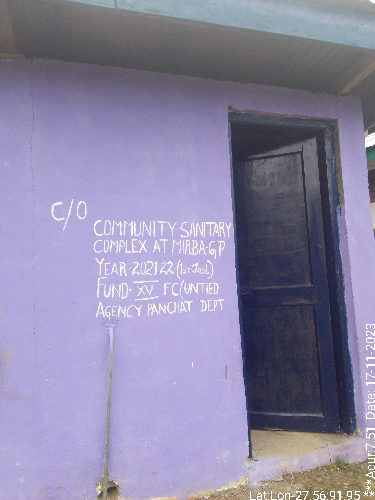 C/O
COMMUNITY SANITARY
COMPLEX AT MIRBA-G,P
YEAR-2021,22 (1st-Inst)
FUND- XV FC(UNTIED
AGENCY PANCHAT DEPT
Lat,Lon-27.56,91.95**
**Acur:7.51 Date: 17-11-2023